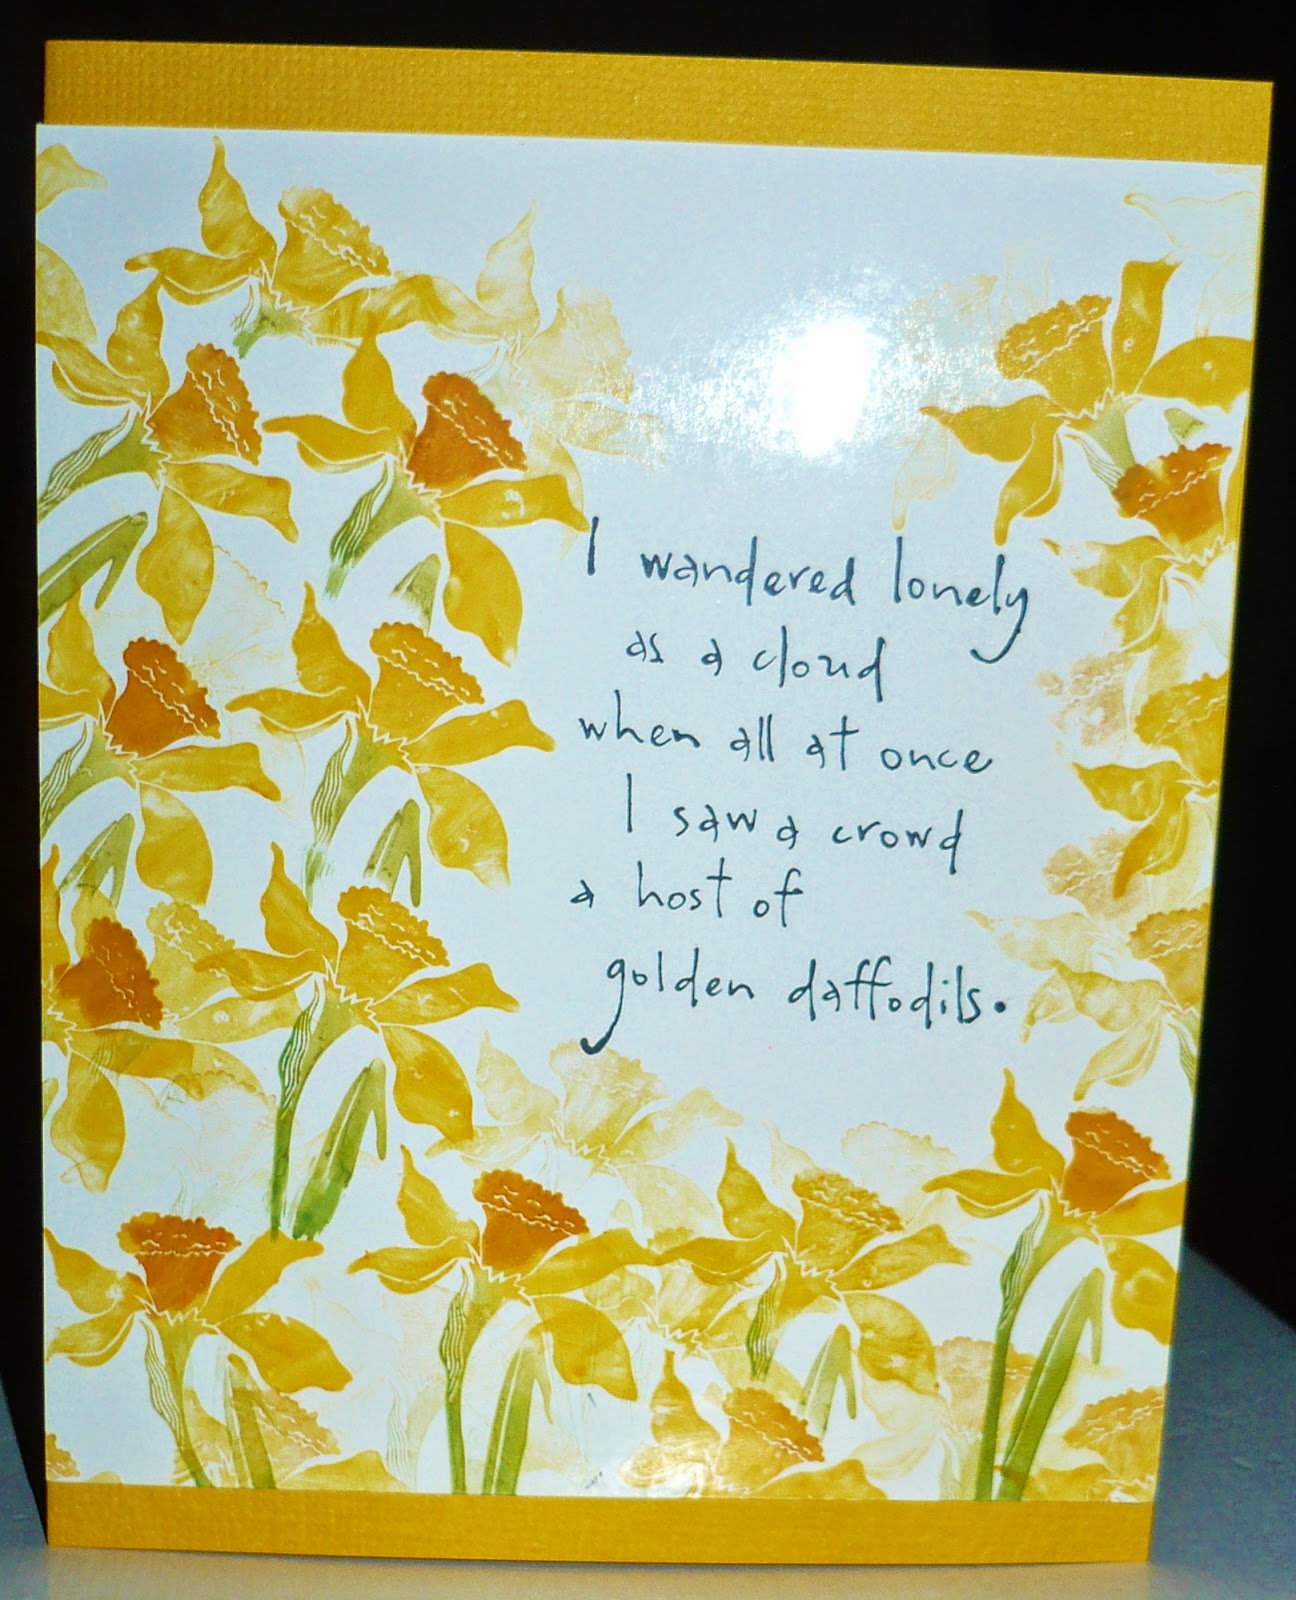 I wandered lonely
as a cloud
when all at once
I saw a crowd
a host of
golden daffodils.